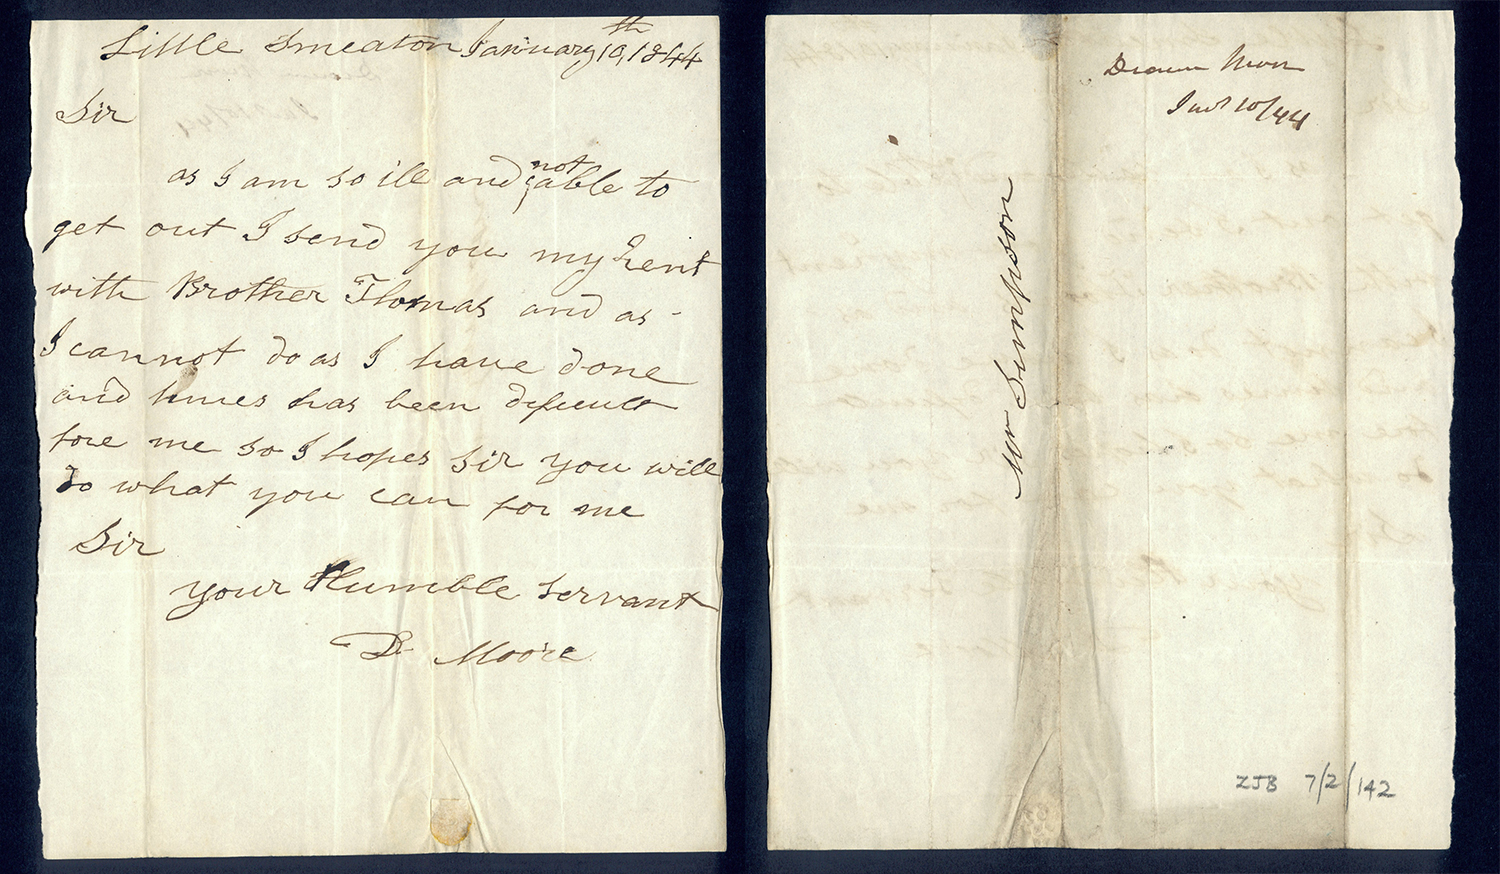 Little Smeaton January 10th, 1844
Sir
as I am so ill and not able to
get out I send you my Rent
with Brother Thomas and as
I cannot do as I have done
and times has been deficult
fore me so I hopes Sir you will
do what you can for me
Sir
your Humble Servant
D Moore
Jany 10/44
Mr Simpson
ZJB 7/2/142